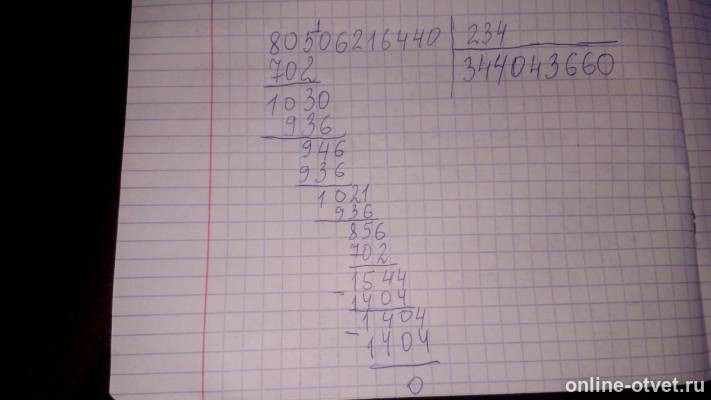 80506216440 234
702 344043660
1
1030
936
946
936
1021
936
856
702
1544
- 1404
1404
- 1404
0
online-otvet.ru